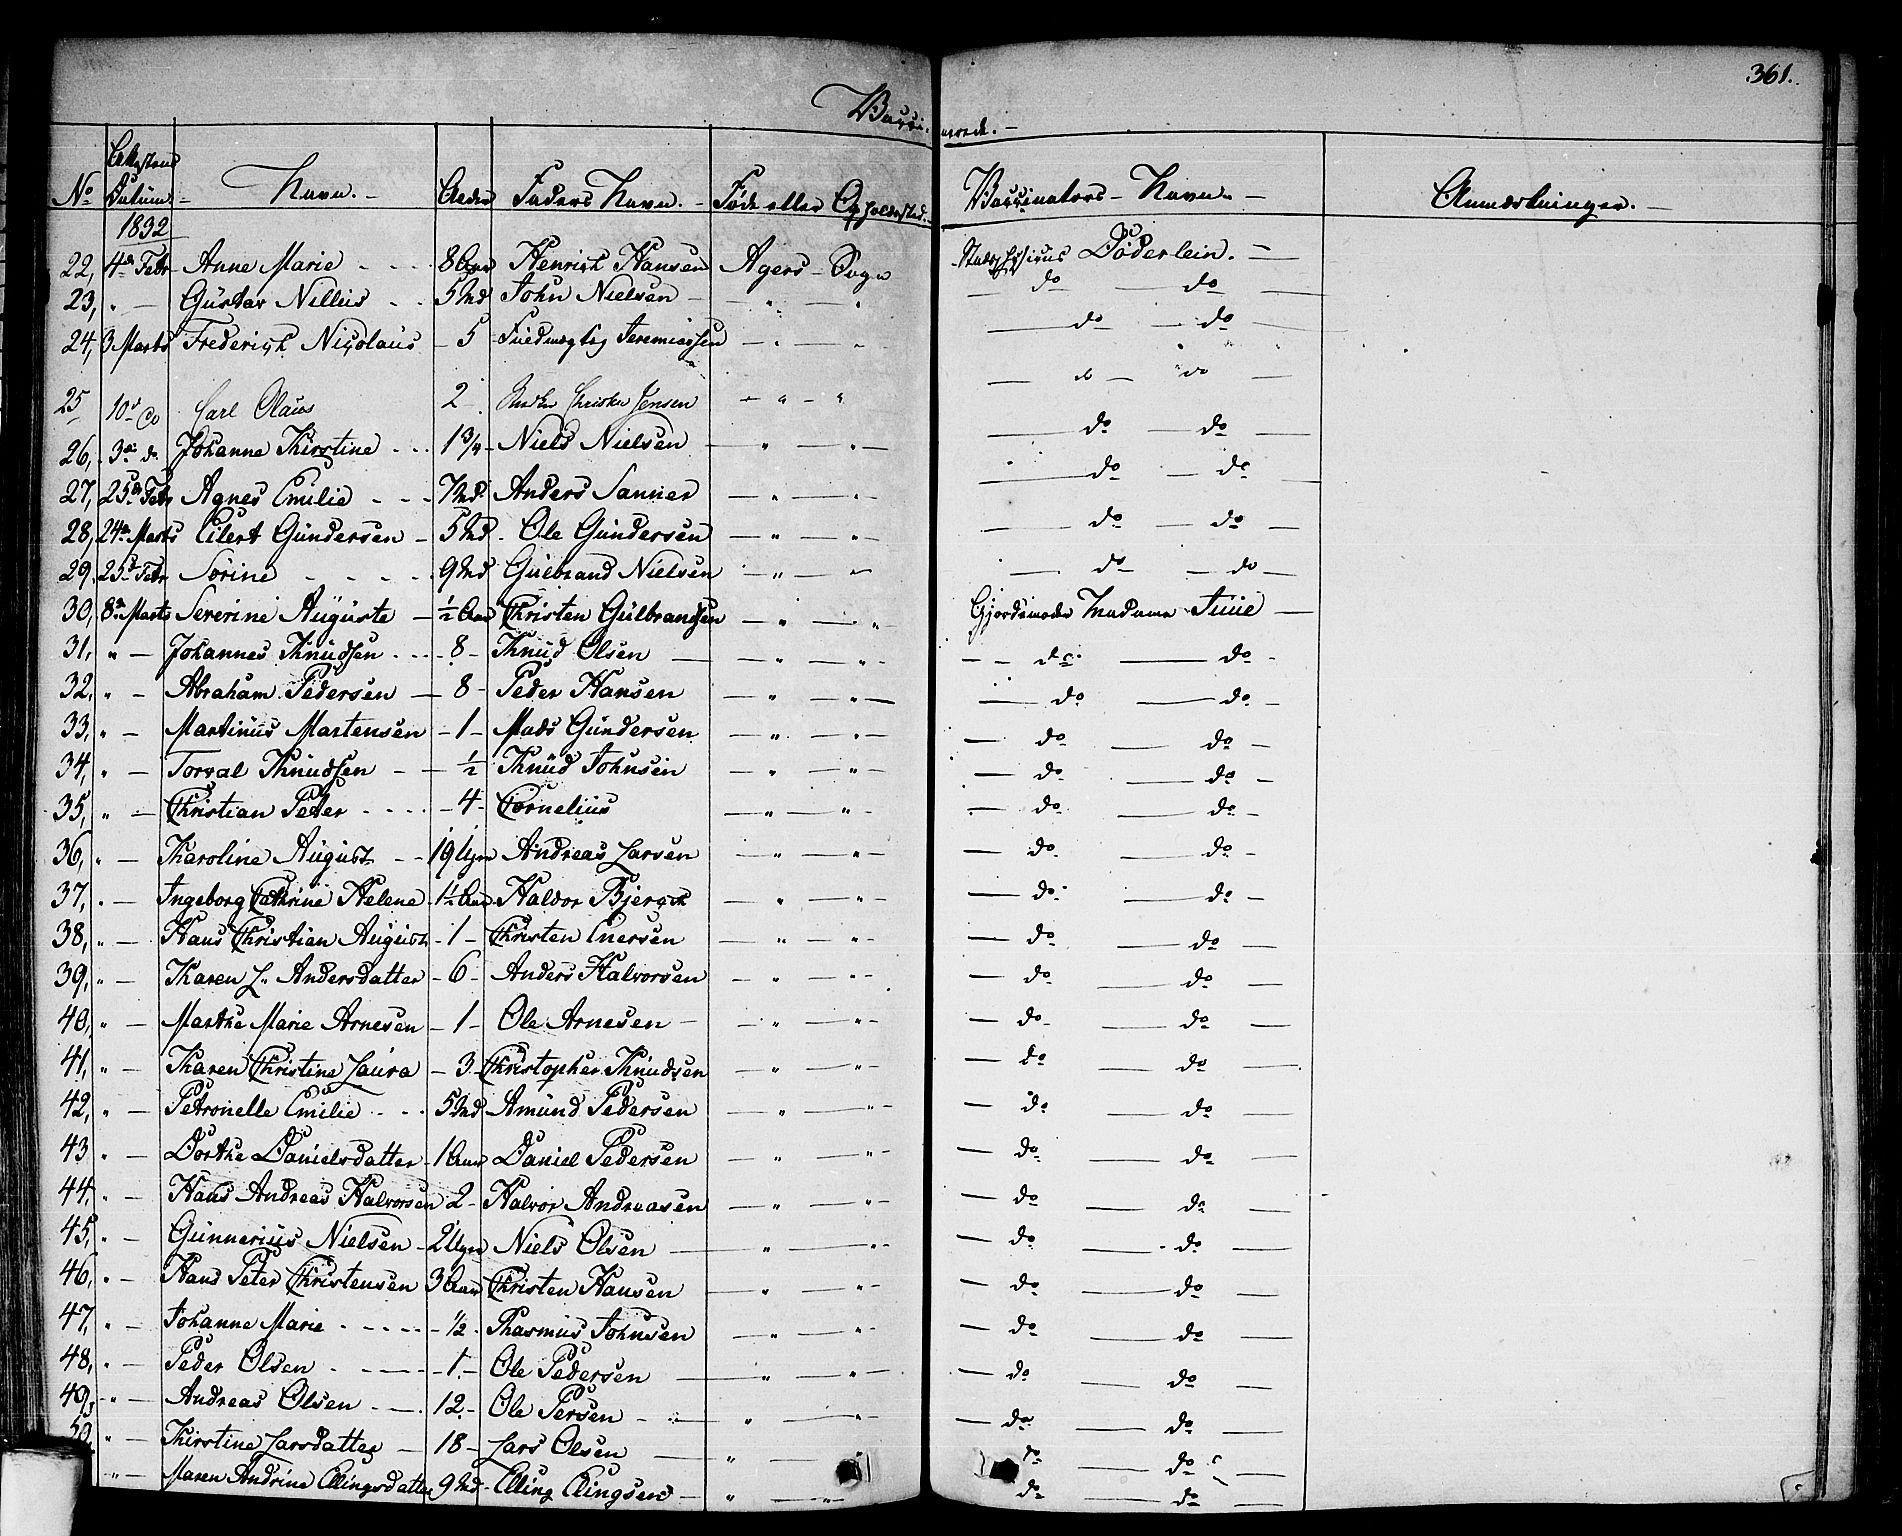 361.
Vacci- nerede. -
No Attestens Datum - Navn. - Alder Faders Navn. - Føde eller Opholdssted. - Vaccinators - Navn. - Anmærkninger. -
1832
22, 4de Febr Anne Marie - - - 8 Aar Henrich Hansen Agers - Sogn Stadsphysicus Döderlein. -
23, " - Gustav Nillius - - 5 Md John Nielsen - " " do do
24, 3 Marts Frederich Nicolaus - 5 - Jeremiassen - " - " do do
25 10d do Carl Olaus 2 Christen Jensen - " - " do do
26, 3de do Johanne Kirstine - - - 1 3/4 - Niels Nielsen - " - " do do
27, 25de Febr Agnes Emilie - - - 7 Md. Anders Sanner - " - " do do
28, 24de Marts Eilert Gundersen - 5 Md - Ole Gundersen - " - " do do
29, 25de Febr Sorine - - - - 9 Md Gulbrand Nielsen - " - " do do
30, 8de Marts Severine Auguste - 1/2 Aar Christen Gulbrandsen - " - " Gjordemoder Madame Tuue -
31, " - Johannes Knudsen - - - 8 - Knud Olsen - " - " do do
32, " - Abraham Pedersen - 8 - Peder Hansen - " - " do do
33, " - Martinus Martensen - 1 - Mads Gundersen - " - " do do
34, " - Torval Knudsen - - 1/2 Knud Johnsen - " - " do do
35, " - Christian Peter - - - - 4 - Cornelius - " - " do do
36, " - Karoline August - - 19 Uger Andreas Larsen - " - " do do
37, " - Ingeborg Cathrine Helene - 1 1/2 Aar Haldor Bjerck - " - " do do
38, " - Hans Christian August - 1 - Christen Enersen - " - " do do
39, " - Karen L. Andersdatter - 6 - Anders Halvorsen - " - " do do
40, " - Marthe Marie Arnesen - 1 - Ole Arnesen - " - " do do
41, " - Karen Christine Laura - 3 - Christopher Knudsen - " - " do do
42, " - Petronelle Emilie - - - 5 Md Amund Pedersen - " - " do do
43 " - Dorthe Danielsdatter - 1 Aar Daniel Pedersen - " - " do do
44, " - Hans Andreas Halvorsen 2 - Halvor Andreasen - " - " do do
45, " - Gunnerius Nielsen - 2 Uger Niels Olsen - " - " do do
46, " - Hans Peter Christensen 3 Aar Christen Hansen - " - " do do
47, " - Johanne Marie - - - - 1/2 - Rasmus Johnsen - " - " do do
48, " - Peder Olsen - - - - 1 - Ole Pedersen - " - " do do
49, " - Andreas Olsen - - 12 - Ole Persen - " - " do do
50, " - Kirstine Larsdatter - 18 - Lars Olsen - " - " do do
" - Maren Andrine Ellingsdatter 9 Md - Elling Elingsen - " - " do do